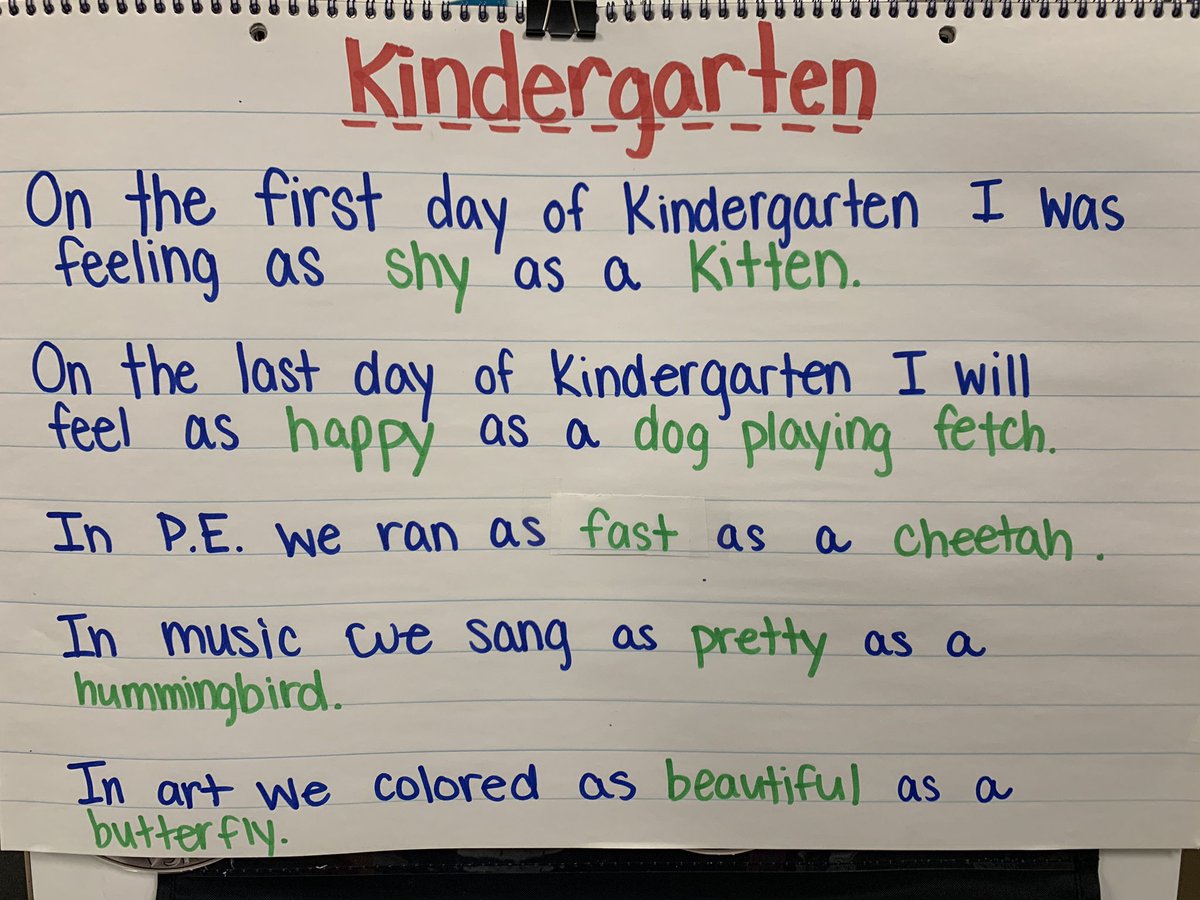 Kindergarten
On the first day of Kindergarten I was
feeling as shy as a Kitten.
On the last day of Kindergarten I will
feel as happy as a dog playing fetch.
In P.E. we ran as fast as a cheetah.
In music we sang as pretty as a
hummingbird.
In art we colored as beautiful as a
butterfly.